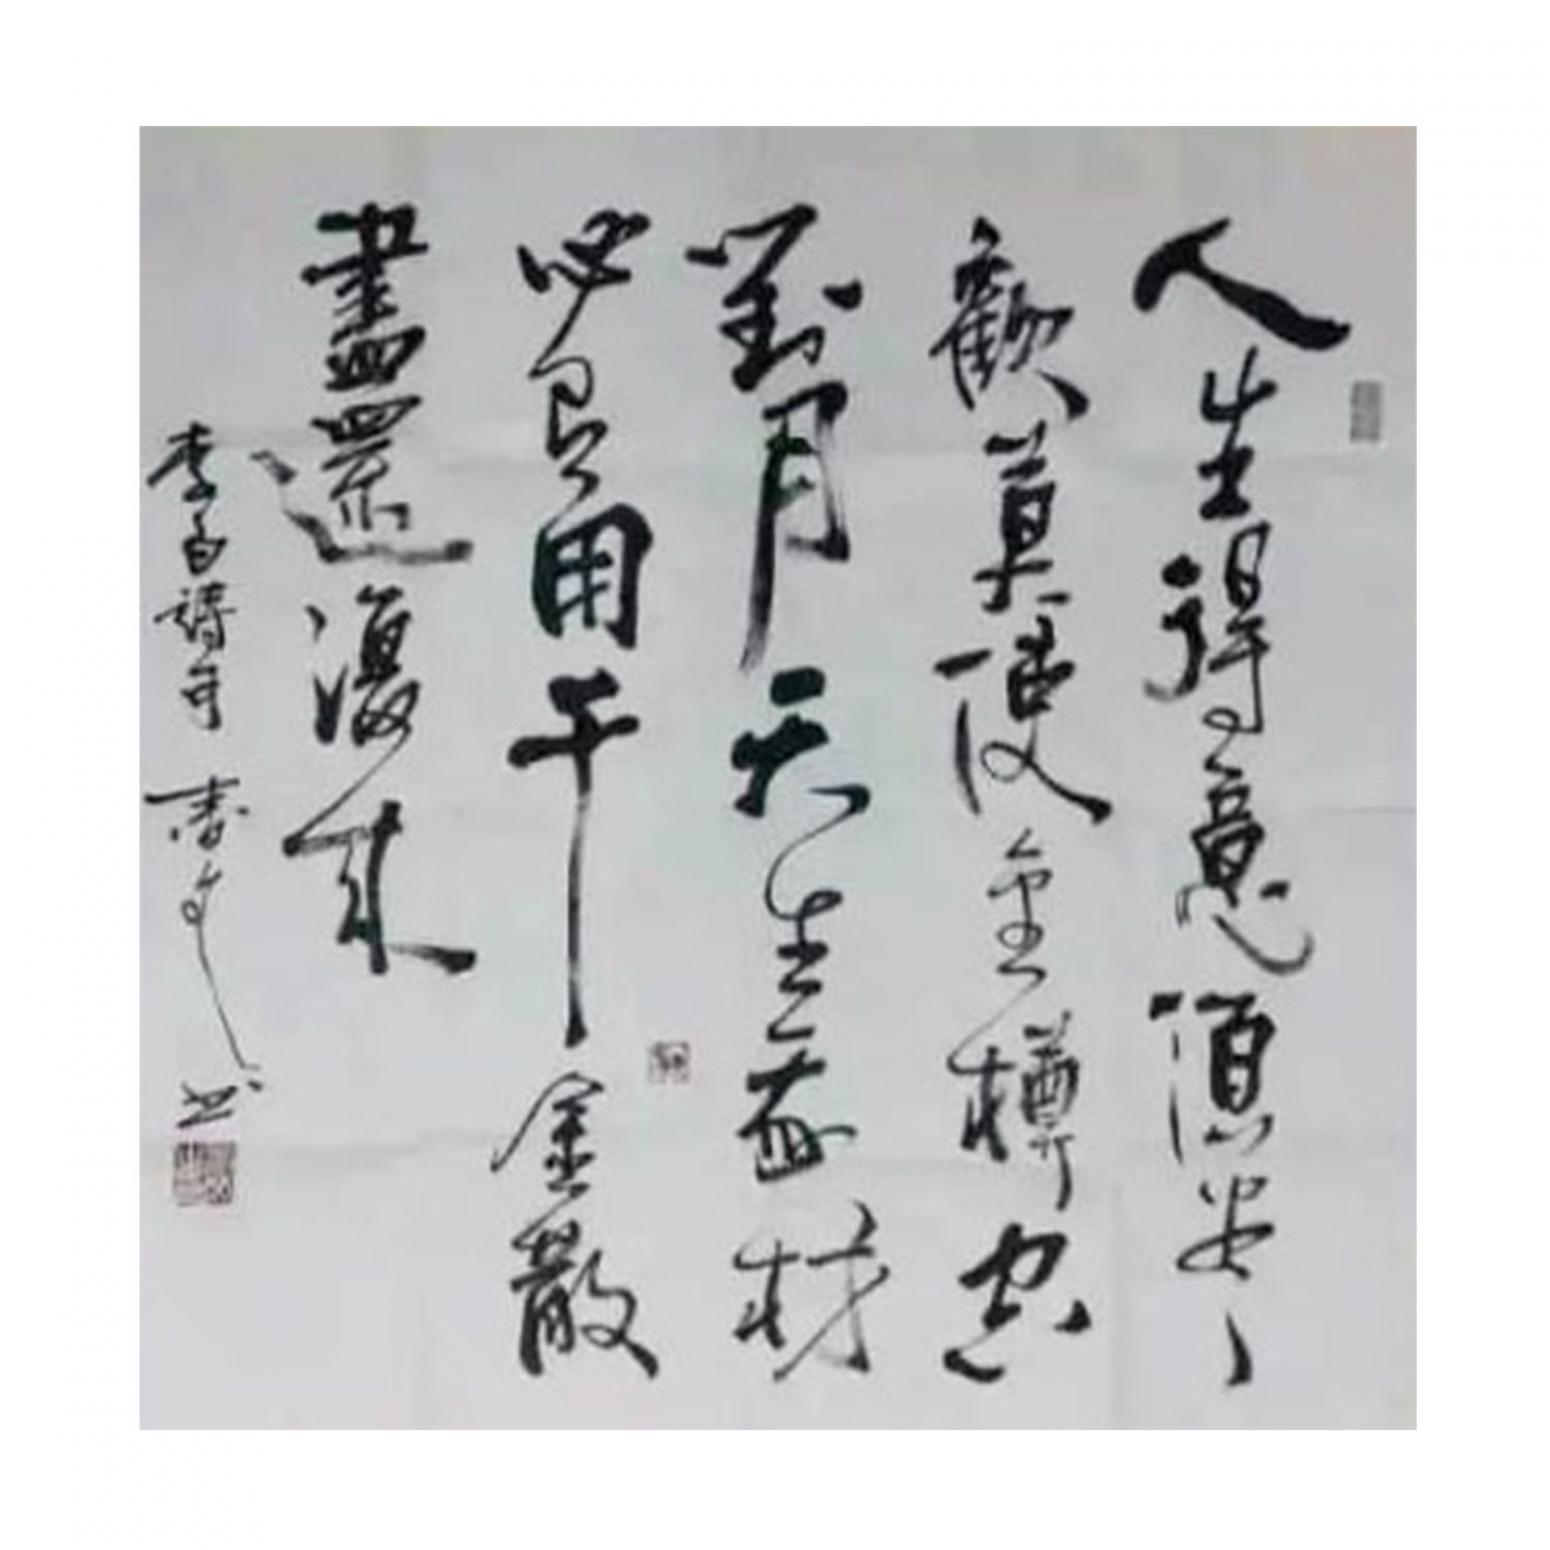 人生得意須盡
歡莫使金樽空
對月天生我材
必有用千金散
盡還復來
李白詩句 書